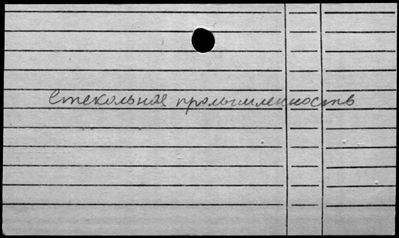 Стекольная промышленность